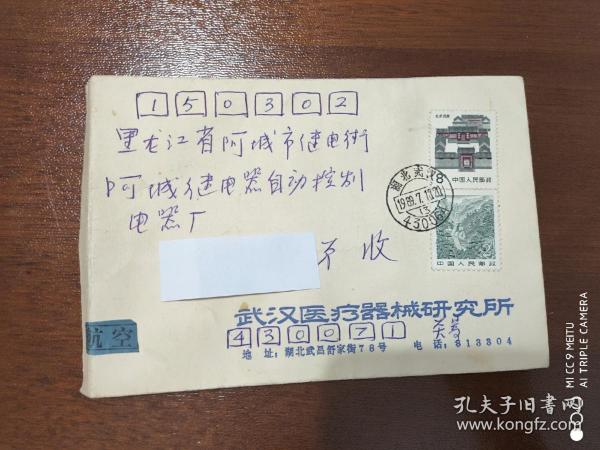 150302
黑龙江省阿城市继电街
阿城继电器自动控制
电器厂
收
北京民居
中国人民邮政
中国人民邮政
湖北武汉
1989.7.
航空
武汉医疗器械研究所
430071
地 址：湖北武昌舒家街78号 电 话：813304
MI CC9 MEITU
AI TRIPLE CAMERA
孔夫子旧书网
www.kongfz.com